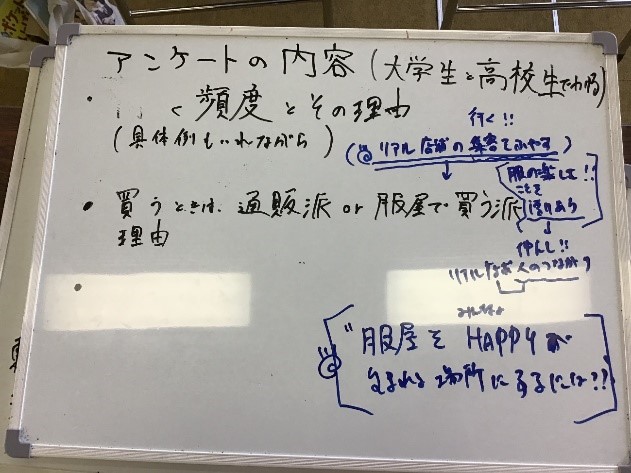 アンケートの内容(大学生と高校生でわける)
・ く頻度とその理由
(具体例もいれながら)
行く!!
(◎リアル店舗の集客てふやす)
↓
服の楽しして!!
ことを
語りあう
↓
・買うときは、通販派or服屋で買う派
理由
仲んし!!
リアルな人のつながり
・
みんなの
"服屋をHAPPYが
生まれる場所にするには??